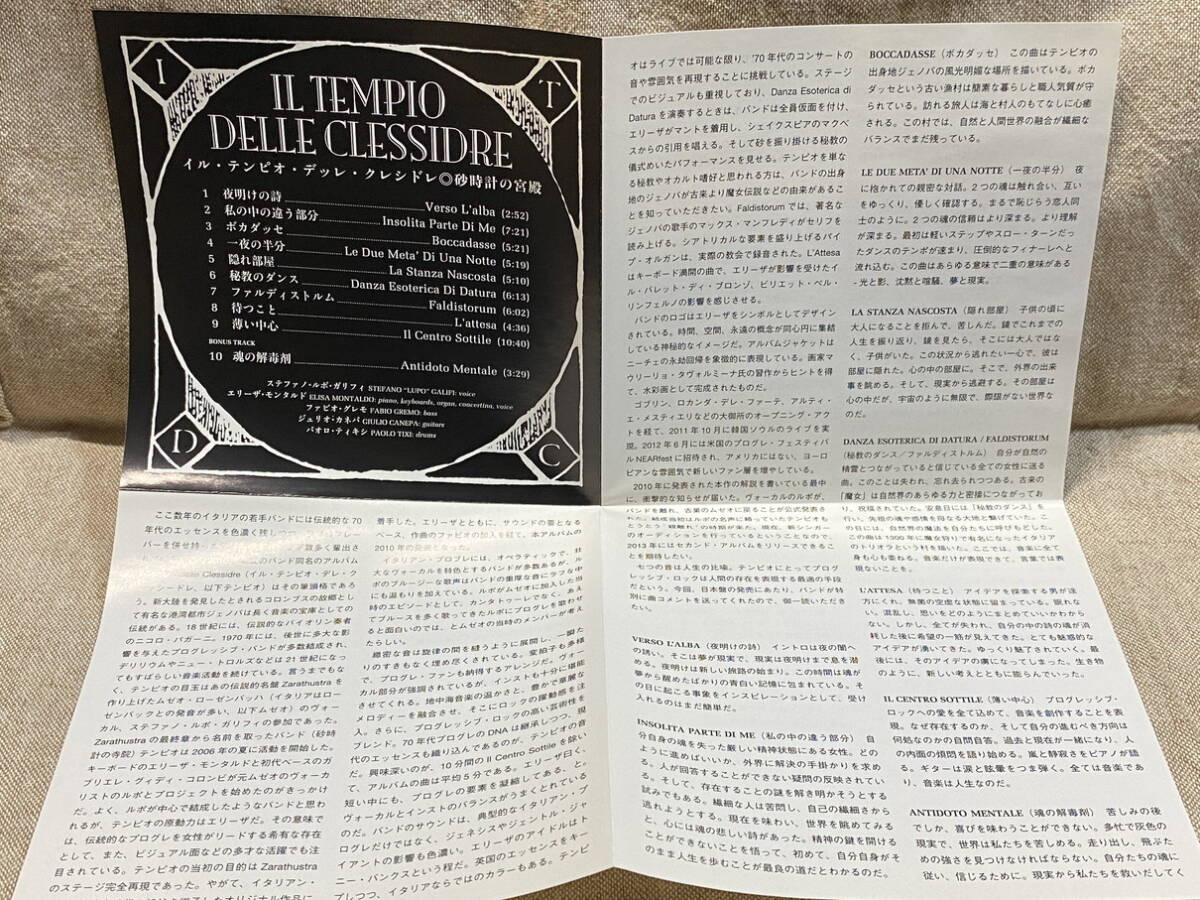 I
T
D
C
IL TEMPIO
DELLE CLESSIDRE
イル・テンピオ・デッレ・クレシドレ◎砂時計の宮殿
1 夜明けの詩 Verso L'alba (2:52)
2 私の中の違う部分 Insolita Parte Di Me (7:21)
3 ボカダッセ Boccadasse (5:21)
4 一夜の半分 Le Due Meta' Di Una Notte (5:19)
5 隠れ部屋 La Stanza Nascosta (5:10)
6 秘教のダンス Danza Esoterica Di Datura (6:13)
7 ファルディストルム Faldistorum (6:02)
8 待つこと L'attesa (4:36)
9 薄い中心 Il Centro Sottile (10:40)
BONUS TRACK
10 魂の解毒剤 Antidoto Mentale (3:29)
ステファノ・ルポ・ガリフィ STEFANO "LUPO" GALIFI: voice
エリーザ・モンタルド ELISA MONTALDO: piano, keyboards, organ, concertina, voice
ファビオ・グレモ FABIO GREMO: bass
ジュリオ・カネパ GIULIO CANEPA: guitars
パオロ・ティキシ PAOLO TIXI: drums
ここ数年のイタリアの若手バンドには伝統的な70
年代のエッセンスを色濃く残し
バーを併せ持
のバンド同名のアルバム
Clessidre（イル・テンピオ・デレ・ク
レシードレ、以下テンピオ）はその筆頭格であろ
う。新大陸を発見したとされるコロンブスの故郷とし
て有名な港湾都市ジェノバは長く音楽の宝庫としての
伝統がある。18世紀には、伝説的なバイオリン奏者
のニコロ・パガーニ。1970年には、後世に多大な影
響を与えたプログレッシブ・バンドが多数結成され、
デリリウムやニュー・トロルズなどは21世紀になっ
てもすばらしい音楽活動を続けている。言うまでもな
く、テンピオの目玉はあの伝説的名盤Zarathustraを
作り上げたムゼオ・ローゼンバッハ（イタリアはロー
ゼンバックとの発音が多い、以下ムゼオ）のヴォー
カル、ステファノ・ルポ・ガリフィの参加であった。
Zarathustraの最終章から名前を取ったバンド（砂時
計の寺院）テンピオは2006年の夏に活動を開始した。
キーボードのエリーザ・モンタルドと初代ベースのガ
ブリエレ・グィディ・コロンビが元ムゼオのヴォーカ
リストのルポとプロジェクトを始めたのがきっかけ
だ。よく、ルポが中心で結成したようなバンドと思わ
れるが、テンピオの原動力はエリーザだ。その意味で
は、伝統的なプログレを女性がリードする希有な存在
として、また、ビジュアル面などの多才な活躍でも注
目されている。テンピオの当初の目的はZarathustra
のステージ完全再現であった。やがて、イタリアン・
着手した。エリーザとともに、サウンドの要となる
ベース、作曲のファビオの加入を経て、本アルバムの
2010年の発表となった。
イタリアン・プログレには、オペラティックで、壮
大なヴォーカルを特色とするバンドが多数あるが、ル
ポのブルージーな歌声はバンドの重厚な音にラフな中
にも温もりを加えている。ルポがムゼオに加入した当
時のエピソードとして、カンタトゥーレでなく、あえ
てブルースを多く歌ってきたルポにプログレを歌わせ
ると面白いのでは、とムゼオの当時のメンバーが考え
たらしい。
緻密な音は旋律の間を縫うように展開し、一瞬た
りのすきもなく埋め尽くされている。変拍子も多様
で、プログレ・ファンも納得するアレンジだ。ヴォー
カル部分が強調されているが、インストも十分に堪能
させてくれる。地中海音楽の温かさと、豊かで華麗な
メロディーを融合させ、そこにロックの躍動感を注
入。さらに、プログレッシブ・ロックの高い芸術性を
ブレンド。70年代プログレのDNAは継承しつつ、現
代のエッセンスも織り込んであるのが、テンピオの音
だ。興味深いのが、10分間のIl Centro Sottileを除い
て、アルバムの曲は平均5分である。エリーザ曰く、
短い中にも、プログレの要素を凝縮してある、と。
ヴォーカルとインストのバランスがうまくとれている
のだ。バンドのサウンドは、典型的なイタリアン・プ
ログレだけではなく、ジェネシスやジェントル・ジャ
イアントの影響も色濃い。エリーザのアイドルはト
ニー・バンクスという程だ。英国のエッセンスをキー
プしつつ、イタリアならではのカラーもある。テンピ
オはライブでは可能な限り、'70年代のコンサートの
音や雰囲気を再現することに挑戦している。ステージ
でのビジュアルも重視しており、Danza Esoterica di
Daturaを演奏するときは、バンドは全員仮面を付け、
エリーザがマントを着用し、シェイクスピアのマクベ
スからの引用を唱える。そして砂を振り掛ける秘教の
儀式めいたパフォーマンスを見せる。テンピオを単な
る秘教やオカルト嗜好と思われる方は、バンドの出身
地のジェノバが古来より魔女伝説などの由来があるこ
とを知っていただきたい。Faldistorumでは、著名な
ジェノバの歌手のマックス・マンフレディがセリフを
読み上げる。シアトリカルな要素を盛り上げるパイ
プ・オルガンは、実際の教会で録音された。L'Attesa
はキーボード満開の曲で、エリーザが影響を受けたイ
ル・バレット・ディ・ブロンゾ、ビリエット・ペル・
リンフェルノの影響を感じさせる。
バンドのロゴはエリーザをシンボルとしてデザイン
されている。時間、空間、永遠の概念が同心円に集結
している神秘的なイメージだ。アルバムジャケットは
ニーチェの永劫回帰を象徴的に表現している。画家マ
ウリーリョ・タヴォルミーナ氏の習作からヒントを得
て、水彩画として完成されたものだ。
ゴブリン、ロカンダ・デレ・ファーテ、アルティ・
エ・メスティエリなどの大御所のオープニング・アク
トを経て、2011年10月に韓国ソウルのライブを実
現。2012年6月には米国のプログレ・フェスティバ
ルNEARfestに招待され、アメリカにはない、ヨーロ
ピアンな雰囲気で新しいファン層を増やしている。
2010年に発表された本作の解説を書いている最中
に、衝撃的な知らせが届いた。ヴォーカルのルポが、
バンドを離れ、古巣のムゼオに戻ることが公式発表さ
れた。結成当初はルポの名声に頼っていたテンピオも
とうとう"親離れ"の時期が来た。現在、新シンガー
のオーディションを行っているということなので、
2013年にはセカンド・アルバムをリリースできるこ
とを期待したい。
七つの音は人生の比喩。テンピオにとってプログ
レッシブ・ロックは人間の存在を表現する最適の手段
だという。今回、日本盤の発売にあたり、バンドが特
別に曲コメントを送ってくれたので、御一読いただき
たい。
VERSO L'ALBA（夜明けの詩） イントロは夜の闇へ
の誘い。そこは夢が現実で、現実は夜明けまで息を潜
める。夜明けは新しい旅路の始まり。この時間は魂が
夢から醒めたばかりの青白い記憶に包まれている。そ
の日に起こる事象をインスピレーションとして、受け
入れるのはまだ簡単だ。
INSOLITA PARTE DI ME（私の中の違う部分） 自
分自身の魂を失った厳しい精神状態にある女性。どの
ように進めばいいか、外界に解決の手掛かりを求め
る。人が回答することができない疑問の反映されてい
る。そして、存在することの謎を解き明かそうとする
試みでもある。繊細な人は苦悶し、自己の繊細さから
逃れようとする。現在を味わい、世界を眺めてみる
と、心には魂の悲しい詩があった。精神の鍵を開ける
ことができないことを悟って、初めて、自分自身がそ
のまま人生を歩むことが最良の道だとわかるのだ。
BOCCADASSE（ボカダッセ） この曲はテンピオの
出身地ジェノバの風光明媚な場所を描いている。ボカ
ダッセという古い漁村は簡素な暮らしと職人気質が守
られている。訪れる旅人は海と村人のもてなしに心癒
される。この村では、自然と人間世界の融合が繊細な
バランスでまだ残っている。
LE DUE META' DI UNA NOTTE（一夜の半分） 夜
に抱かれての親密な対話。2つの魂は触れ合い、互い
をゆっくり、優しく確認する。まるで恥じらう恋人同
士のように。2つの魂の信頼はより深まる。より理解
が深まる。最初は軽いステップやスロー・ターンだっ
たダンスのテンポが速まり、圧倒的なフィナーレへと
流れ込む。この曲はあらゆる意味で二重の意味がある
- 光と影、沈黙と喧騒、夢と現実。
LA STANZA NASCOSTA（隠れ部屋） 子供の頃に
大人になることを拒んで、苦しんだ。鏡でこれまでの
人生を振り返り、鏡を見たら、そこには大人ではな
く、子供がいた。この状況から逃れたい一心で、彼は
部屋に隠れた。心の中の部屋に。そこで、外界の出来
事を眺める。そして、現実から逃避する。その部屋は
心の中だが、宇宙のように無限で、際限がない世界な
のだ。
DANZA ESOTERICA DI DATURA / FALDISTORUM
（秘教のダンス／ファルディストルム） 自分が自然の
精霊とつながっていると信じている全ての女性に送る
曲。このことは失われ、忘れ去られつつある。古来の
「魔女」は自然界のあらゆる力と密接につながってお
り、祝福されていた。安息日には「秘教のダンス」を
行い、失祖の魂や感情を母なる大地と繋げていた。こ
の日には、自然界の魔法を自分たちに呼びもどした。
この曲は1300年に魔女狩りで有名になったイタリア
のトリオラという村を描いた。ここでは、音楽に全て
身も心も委ねる。音楽だけが表現できて、言葉では表
現ないことを。
L'ATTESA（待つこと） アイデアを探索する男が途
方にくれ、無風の空虚な状態に留まっている。眠れな
い。混乱し、思いをどのようにまとめてもいいかわから
ない。しかし、全てが失われ、自分の中の詩の魂が消
耗した後に希望の一筋が見えてきた。とても魅惑的な
アイデアが湧いてきた。ゆっくり魅了されていく。最
後には、そのアイデアの虜になってしまった。生き物
のように、新しい考えとともに能らんでいった。
IL CENTRO SOTTILE（薄い中心） プログレッシブ・
ロックへの愛を全て込めて、音楽を創作することを表
現。なぜ存在するのか、そして自分の進むべき方向は
何処なのかの自問自答。過去と現在が一緒になり、人
の内面の煩悶を語り始める。嵐と静寂さをピアノが語
る。ギターは涙と眩暈をつま弾く。全ては音楽であ
り、音楽は人生なのだ。
ANTIDOTO MENTALE（魂の解毒剤） 苦しみの後
でしか、喜びを味わうことができない。多忙で灰色の
現実で、世界は私たちを苦しめる。走り出し、飛ぶた
めの強さを見つけなければならない。自分たちの魂に
従い、信じるために。現実から私たちを救いだしてく